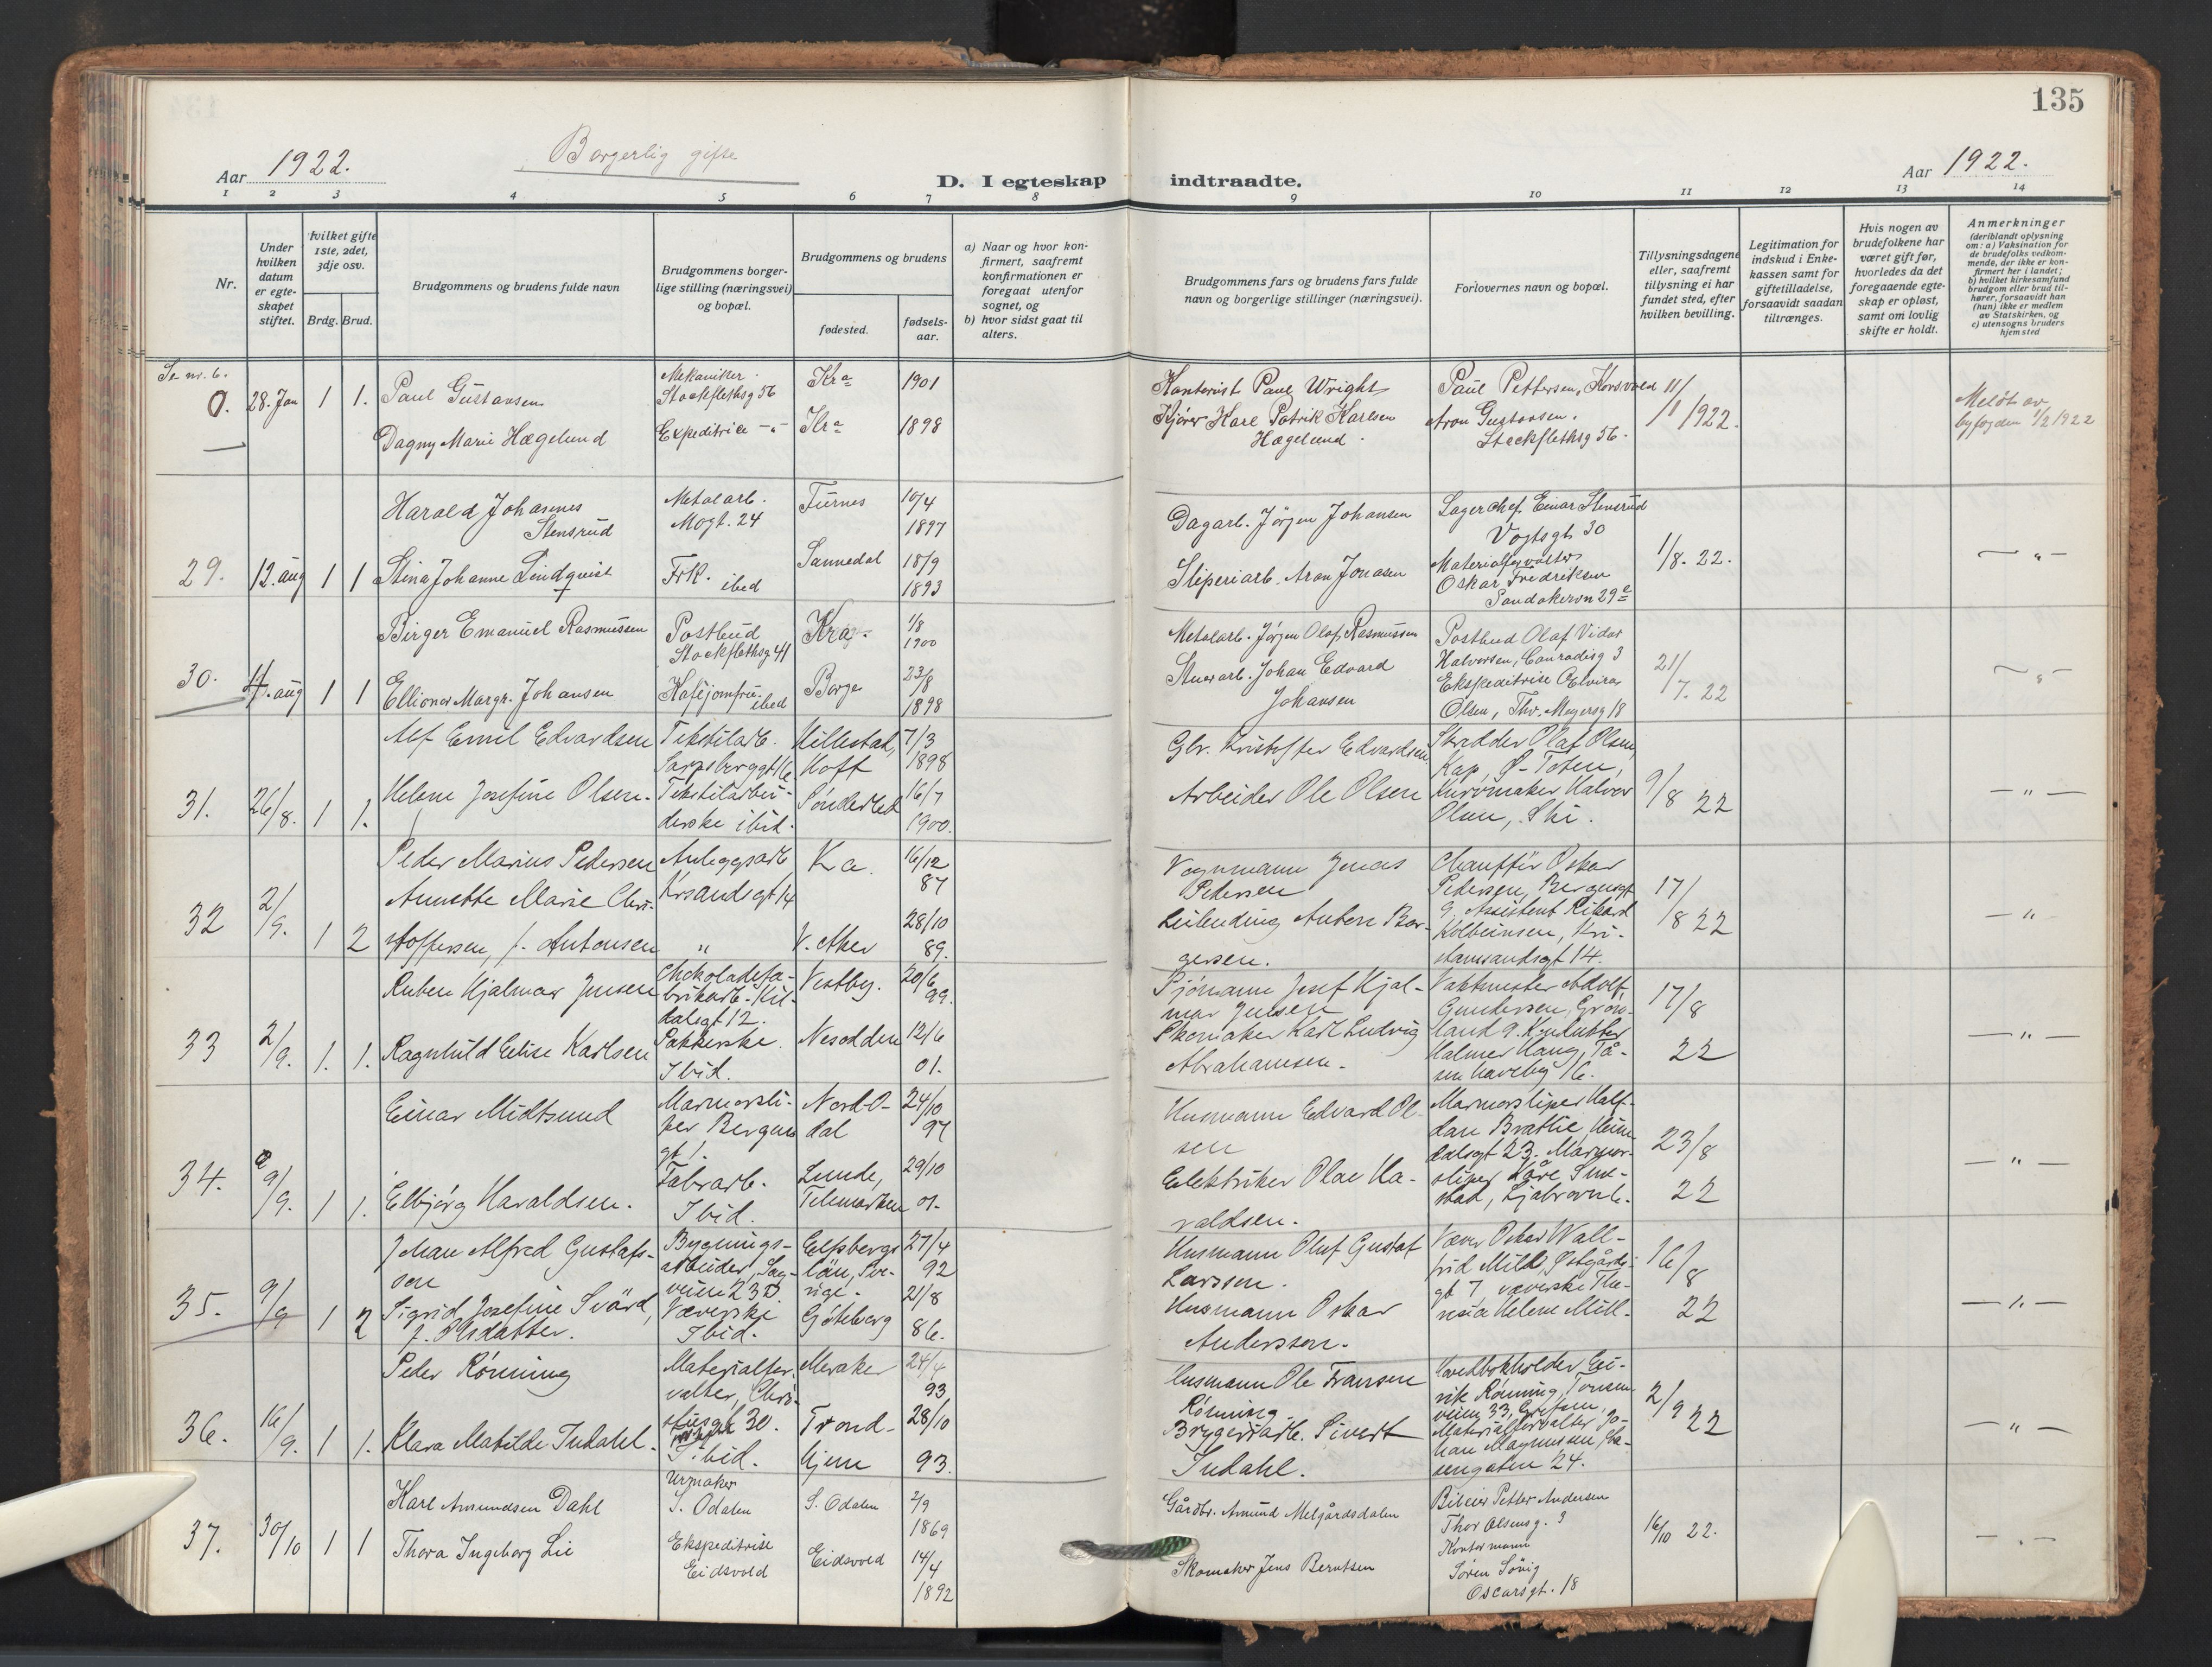 135
Aar 1922.
Borgerlig gifte
D. I egteskap indtraadte.
Aar 1922.
1 2 3 4 5 6 7 8 9 10 11 12 13 14
Nr.
Under
hvilken
datum
er egte-
skapet
stiftet.
hvilket gifte
1ste, 2det,
3dje osv.
Brdg. Brud.
Brudgommens og brudens fulde navn
Brudgommens borger-
lige stilling (næringsvei)
og bopæl.
Brudgommens og brudens
fødested.
fødsels-
aar.
a) Naar og hvor kon-
firmert, saafremt
konfirmationen er
foregaat utenfor
sognet, og
b) hvor sidst gaat til
alters.
Brudgommens fars og brudens fars fulde
navn og borgerlige stillinger (næringsvei).
Forlovernes navn og bopæl.
Tillysningsdagene
eller, saafremt
tillysning ei har
fundet sted, efter
hvilken bevilling.
Legitimation for
indskud i Enke-
kassen samt for
giftetilladelse,
forsaavidt saadan
tiltrænges.
Hvis nogen av
brudefolkene har
været gift før,
hvorledes da det
foregaaende egte-
skap er opløst,
samt om lovlig
skifte er holdt.
Anmerkninger
(deriblandt oplysning
om: a) Vaksination for
de brudefolks vedkom-
mende, der ikke er kon-
firmert her i landet;
b) hvilket kirkesamfund
brudgom eller brud til-
hører, forsaavidt han
(hun) ikke er medlem
av Statskirken, og
c) utensogns bruders
hjemsted
Se nr. 6.
0. 28. Jan 1 1.
Paul Gustavsen
Dagny Marie Hægelund
Mekaniker.
Stockflethsg 56
Expeditrice -"-
Kra
Kra
1901
1898
Kontorist Paul Wright
Kjører Karl Patrik Karlsen
Hægelund.
Paul Pettersen, Korsvold
Aron Gustavsen.
Stockflethsg 56.
11/
/1 1922.
Meldt av
byfogden 1/2 1922
29. 12. aug 1 1
Harald Johannes
Stensrud
Stina Johanne Lindqvist
Metalarb.
Mogt. 24
Frk. ibed
Furnes
Sannedal
10/4
1897
18/9
1893
Dagarb. Jörgen Johansen
Sliperiarb. Aron Jonasen
Lagerchef Einar Stensrud
Vogtsgt 30
Materialforvalter
Oskar Fredriksen
Sandakervn 29
1/8. 22.
- " -
30. aug 1 1
Birger Emanuel Rasmussen
Ellionor Margr. Johansen
Postbud
Stockflethsg 41
Kaféjomfru.
ibed
Kra.
Borge
1/8
1900
23/8
1898
Metalarb. Jörgen Olaf Rasmussen
Stuerarb. Johan Edvard
Johansen
Postbud Olaf Vidar
Halvorsen, Conradisg 3
Ekspeditrise Elvira
Olsen, Thv. Meyersg 18
21/
7. 22
- " -
31. 26/8. 1 1.
Alf Emil Edvardsen
Helene Josefine Olsen.
Tekstilarb.
Sarpsborggt 16
Tekstilarbei-
derske ibid.
Hillestad,
Hoff
Sönderled
7/3
1898
16/7
1900.
Gbr. Kristoffer Edvardsen.
Arbeider Ole Olsen
Skrædder Olaf Olsen,
Kap, Ø-Toten,
Kurvmaker Halvor
Olsen, Ski.
9/8 22
- " -
32 2/9. 1 2
Peder Marius Pedersen
Annette Marie Chri-
stoffersen, f. Antonsen
Anleggsarb
Krsandsgt 14
"
Kra.
V. Aker
16/12
87
28/10
89.
Vognmann Jonas
Petersen
Leilending Antern Bor-
gersen.
Chauffør Oskar
Pedersen, Bergensgt
9, Assistent Rikard
Kolbeinsen, Kri-
stiansandsgt 14.
17/
/8 22
- "
33 2/9. 1. 1.
Ruben Hjalmar Jensen
Ragnhild Elise Karlsen
Chokoladefa-
brikarb.
dalsgt 12.
Pakkerske.
Ibid.
Vestby.
Nesodden
20/6
99.
12/6
01.
Sjömann Josef Hjal-
mar Jensen
Skomaker Karl Ludvig
Abrahamsen.
Vaktmester Adolf
Gundersen, Grön-
land 9. Konduktør
Halmer Haug, Tå-
sen haveby 16.
17/8
22
- " -
34. 9/9. 1 1.
Einar Midtsund
Elbjörg Haraldsen.
Marmorsli-
per Bergens
gt 1.
Fabrarb.
Ibid.
Nord-O-
dal
Lunde,
Telemarken
24/10
97
29/10
01.
Husmann Edvard Ol-
sen
Elektriker Olav Ha-
raldsen.
Marmorsliper Half-
dan Bratlie, Heim-
dalsgt 23. Marmor-
sliper Kåre Sme-
stad, Ljabrovei.
23/8
22
- " -
35. 9/9 1 2
Johan Alfred Gustafs-
son
Sigrid Josefine Svärd,
f. Olsdatter.
Bygnings-
arbeider, Sag-
veien 23 D
Væverske
Ibid.
Elfsborgs
län, Sve-
rige.
Göteborg
27/4
92
21/8
86.
Husmann Oluf Gustaf
Larsson.
Husmann Oskar
Andersson.
Væver Oskar Wall-
frid Mild, Østgårds-
gt 7, væverske The-
resia Helene Mild.
16/8
22
- " -
36. 16/9. 1 1.
Peder Rönning
Klara Matilde Indahl.
Materialfor-
valter, Chri-
stiesgt 30.
Ibid.
Meraker
Trond-
hjem
24/4
93
28/10
93.
Husmann Ole Fransen
Rönning.
Bryggeriarb. Sivert
Indahl.
Hovedbokholder Ei-
rik Rönning, Tonsen
veien 33, Grefsen,
Materialforvalter Jo-
han Magnussen,
engaten 24.
2/9 22
- " -
37. 30/10 1 1
Karl Amundsen Dahl
Thora Ingeborg Lie
Urmaker
S. Odalen
Ekspeditrise
Eidsvold
S. Odalen
Eidsvold
2/9
1869
14/4
1892
Gårdbr. Amund Melgårdsdalen
Skomaker Jens Berntsen
Bileier Petter Andersen
Thor Olsensg. 3
Kontormann
Sören Sörig
Oscarsgt. 18
16/10 22.
- " -